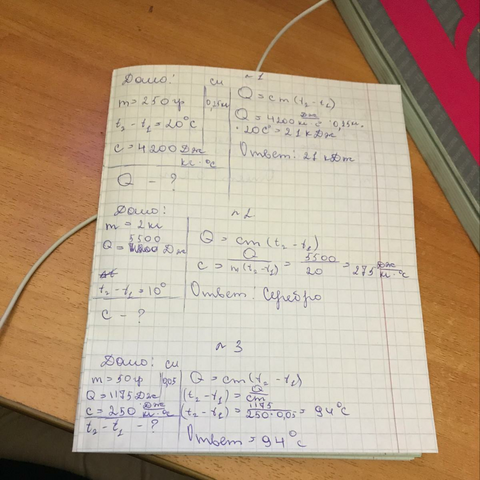 №1
Дано: СИ
m = 250 гр 0,25 кг
t₂ - t₁ = 20°C
c = 4200 Дж/кг·°C
Q - ?
Q = cm(t₂ - t₁)
Q = 4200 Дж/кг·°C · 0,25 кг ·
· 20°C = 21 кДж
Ответ: 21 кДж
№2
Дано:
m = 2 кг
Q = 5500 Дж
t₂ - t₁ = 10°
c - ?
Q = cm(t₂ - t₁)
c = Q/m(t₂ - t₁) = 5500/20 = 275 Дж/кг·°C
Ответ: Серебро
№3
Дано: СИ
m = 50 гр 0,05
Q = 1175 Дж
c = 250 Дж/кг·°C
t₂ - t₁ - ?
Q = cm(t₂ - t₁)
(t₂ - t₁) = Q/cm
(t₂ - t₁) = 1175/250·0,05 = 94°C
Ответ = 94°C